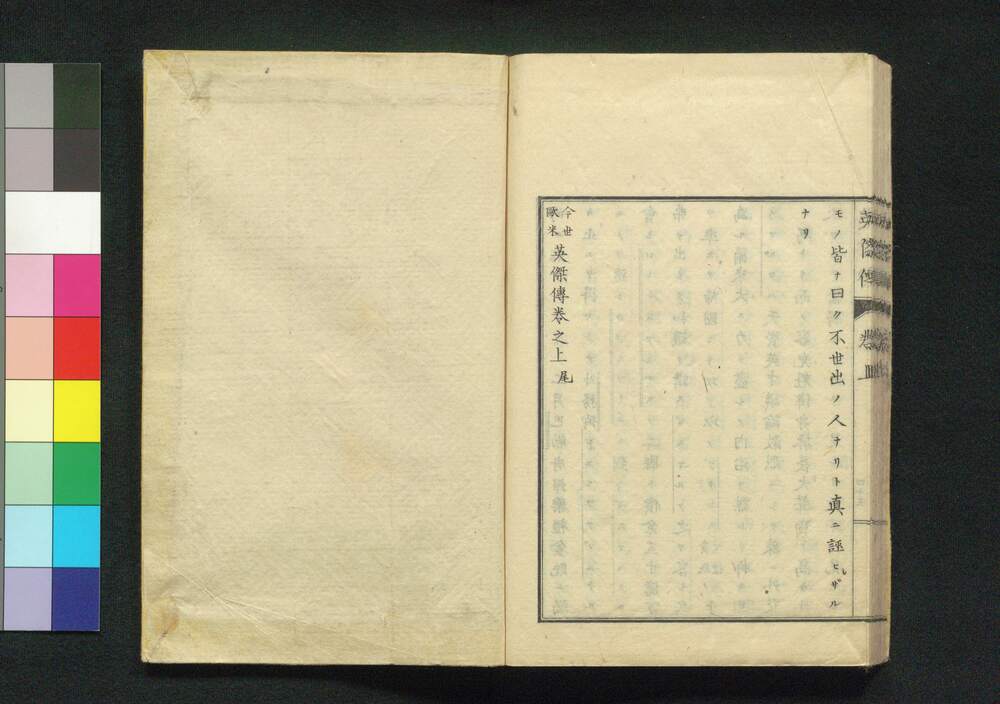 モノ皆ナ曰ク不世出ノ人ナリト真ニ誣ヒザル
ナリ
今世
歐米
英傑傳巻之上尾
英傑傳